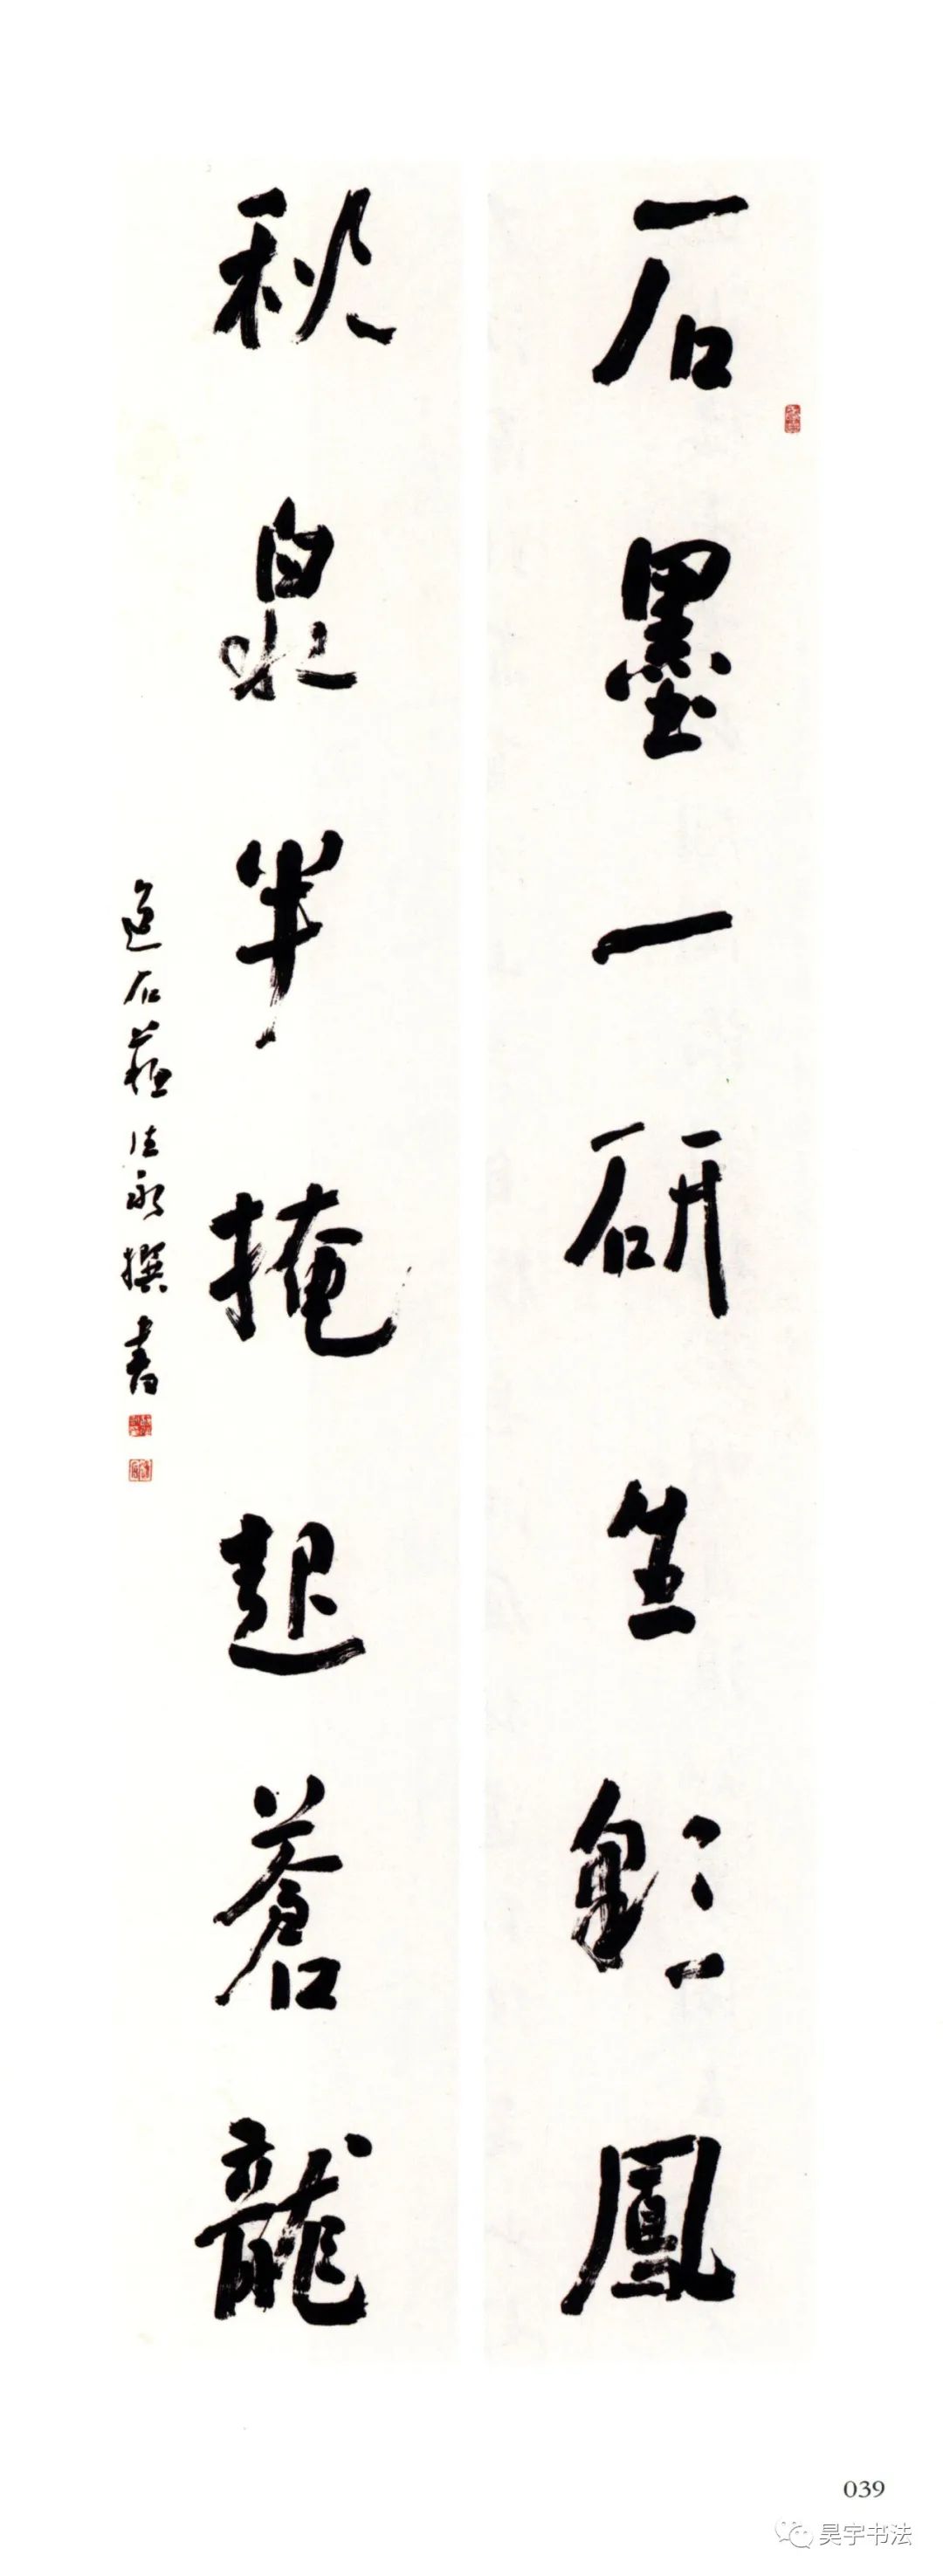 石墨一研生彩鳳
秋泉半掩起蒼龍
石蘇法永撰書
039
昊宇书法